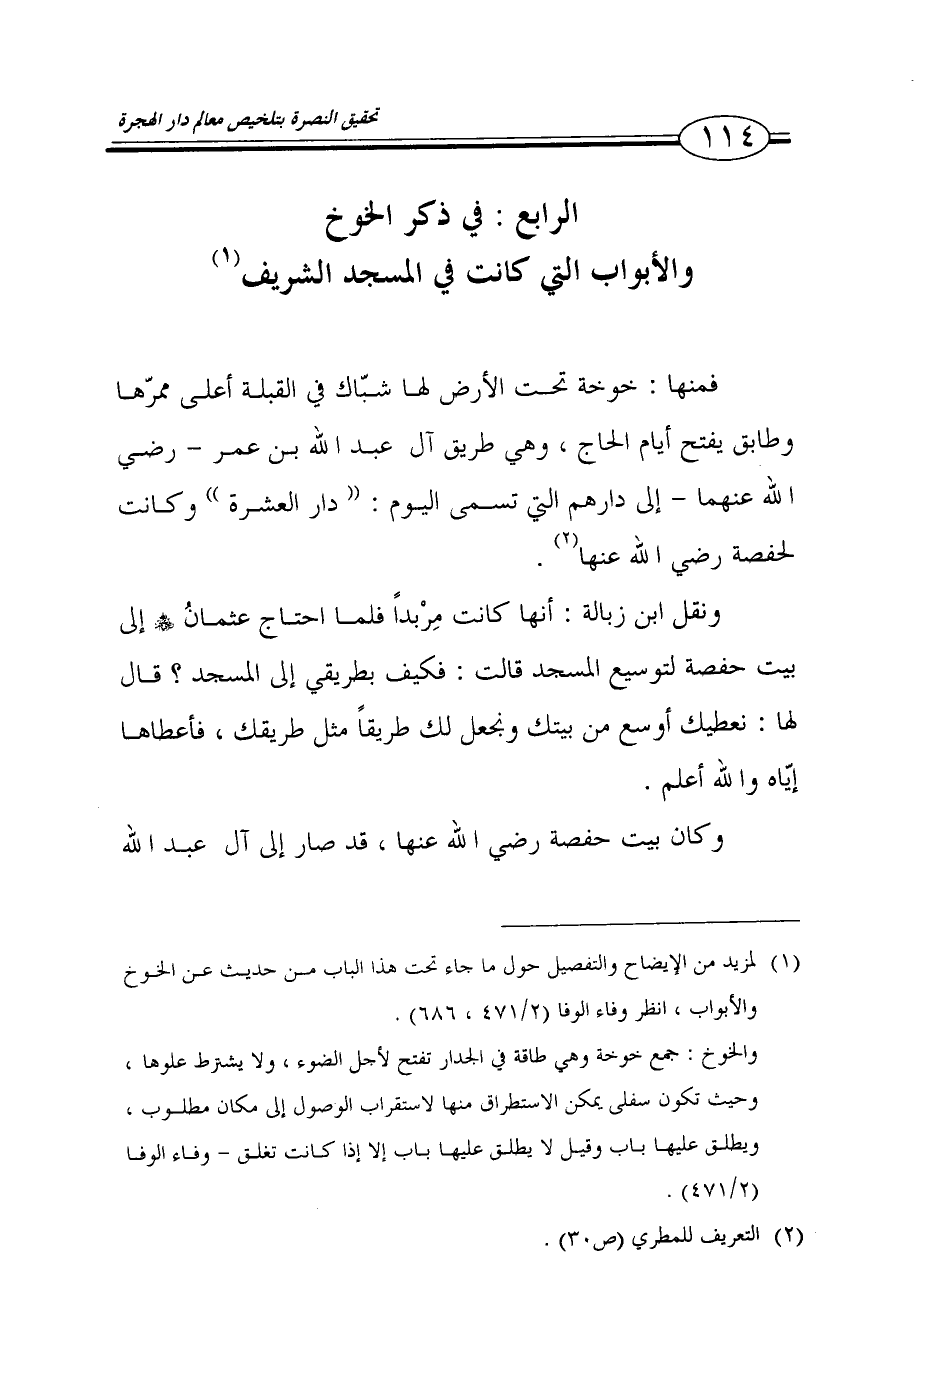 تحقيق النصرة بتلخيص معالم دار الهجرة
١١٤
الرابع : في ذكر الخوخ
والأبواب التي كانت في المسجد الشريف(١)
فمنها : خوخة تحت الأرض لها شبّاك في القبلة أعلى ممرّها
وطابق يفتح أيام الحاج ، وهي طريق آل عبد الله بن عمر – رضي
الله عنهما – إلى دارهم التي تسمى اليوم : (( دار العشرة )) وكانت
لحفصة رضي الله عنها(٢) .
ونقل ابن زبالة : أنها كانت مِرْبداً فلما احتاج عثمانُ ﷺ إلى
بيت حفصة لتوسيع المسجد قالت : فكيف بطريقي إلى المسجد ؟ قال
لها : نعطيك أوسع من بيتك ونجعل لك طريقاً مثل طريقك ، فأعطاها
إيّاه والله أعلم .
وكان بيت حفصة رضي الله عنها ، قد صار إلى آل عبد الله
(١) لمزيد من الإيضاح والتفصيل حول ما جاء تحت هذا الباب من حديث عن الخوخ
والأبواب ، انظر وفاء الوفا (٤٧١/٢ ، ٦٨٦) .
والخوخ : جمع خوخة وهي طاقة في الجدار تفتح لأجل الضوء ، ولا يشترط علوها ،
وحيث تكون سفلى يمكن الاستطراق منها لاستقراب الوصول إلى مكان مطلوب ،
ويطلق عليها باب وقيل لا يطلق عليها باب إلا إذا كانت تغلق – وفاء الوفا
(٤٧١/٢) .
(٢) التعريف للمطري (ص٣٠) .